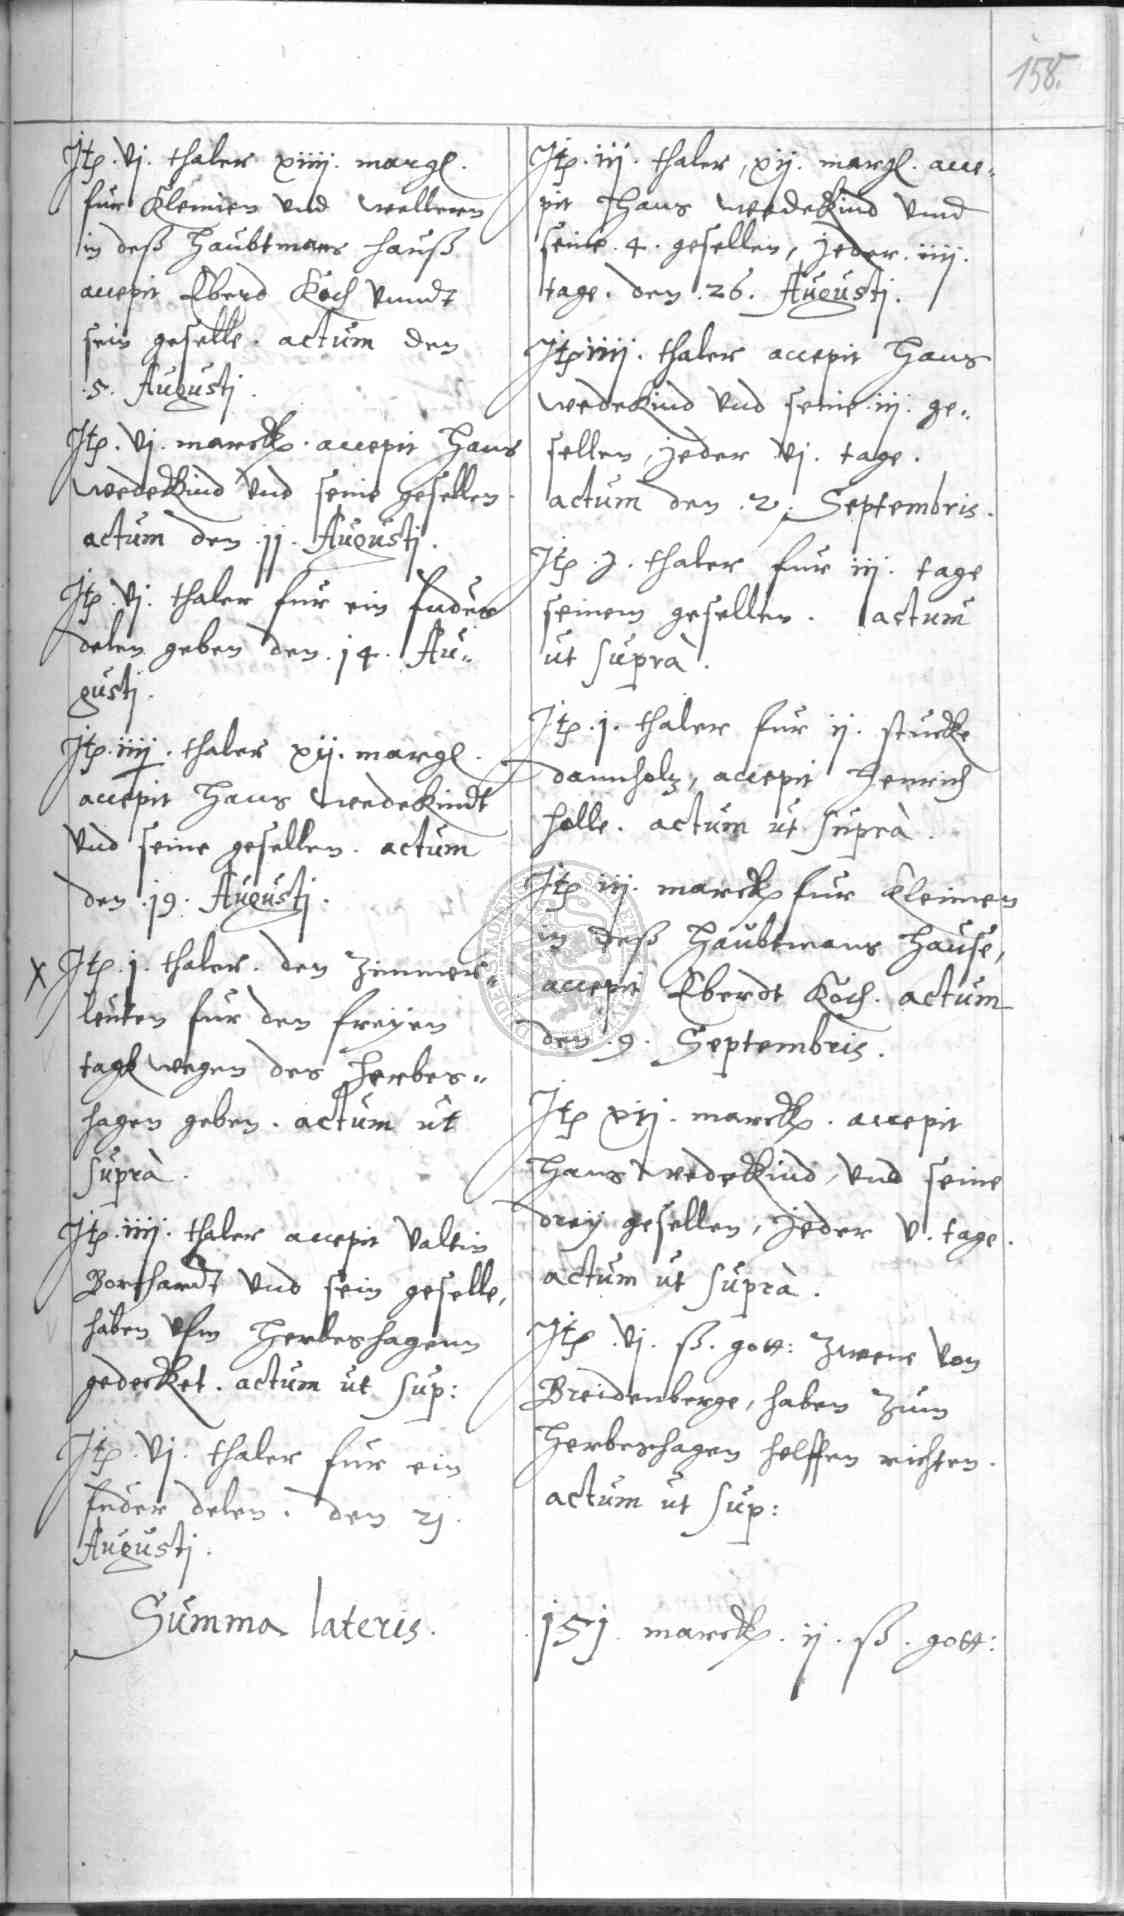 158.
Jtp. vj. thaler xiiij. margl.
fur Klemen vnd wellern
in deß Haubtmans hauß
accepit Eberd Koch vnndt
sein geselle. actum den
.5. Augustj.
Jtp. vj. marck. accepit Hans
Wedekind vnd seine gesellen.
actum den .jj. Augustj.
Jtp. vj. thaler fur ein fuder
delen geben den .j4. Au„
gustj.
Jtp. iiij. thaler xij. margl.
accepit Hans Wedekindt
vnd seine gesellen. actum
den .j9. Augustj.
x Jtp. j. thaler. den Zimmer„
leuten fur den freyen
tagk wegen des Herbes„
hagen geben. actum ut
suprà.
Jtp. iiij. thaler accepit Valtin
Borchardt vnd sein geselle,
haben vfm Herbeshagenn
gedecket. actum ut sup:
Jtp. vj. thaler fur ein
fuder delen. den 2j.
Augustj.
Summa lateris.
Jtp. iij. thaler, xij. margl. acce„
pit Hans Wedekind vnnd
seine .4. gesellen, jeder. iiij.
tage. den .26. Augustj.
Jtp iiij. thaler accepit Hans
Wedekind vnd seine .iij. ge„
sellen, jeder vj. tage.
actum den .2. Septembris.
Jtp. j. thaler fur iij. tage
seinem gesellen. actum
ut suprà.
Jtp. j. thaler fur ij. stucke
dannholz, accepit Henrich
Holle. actum ut suprà.
Jtp iij. marck fur Kleimen
in deß Haubtmans Hause,
accepit Eberdt Koch. actum
den .9. Septembris.
Jtp xij. marck. accepit
Hans Wedekind, vnd seine
drey gesellen, jeder v. tage.
actum ut suprà.
Jtp. vj. ß. gott: Zweene von
Breidenberge, haben Zum
Herbeshagen helffen richten.
actum ut sup:
j5j. marck. ij. ß. gott: